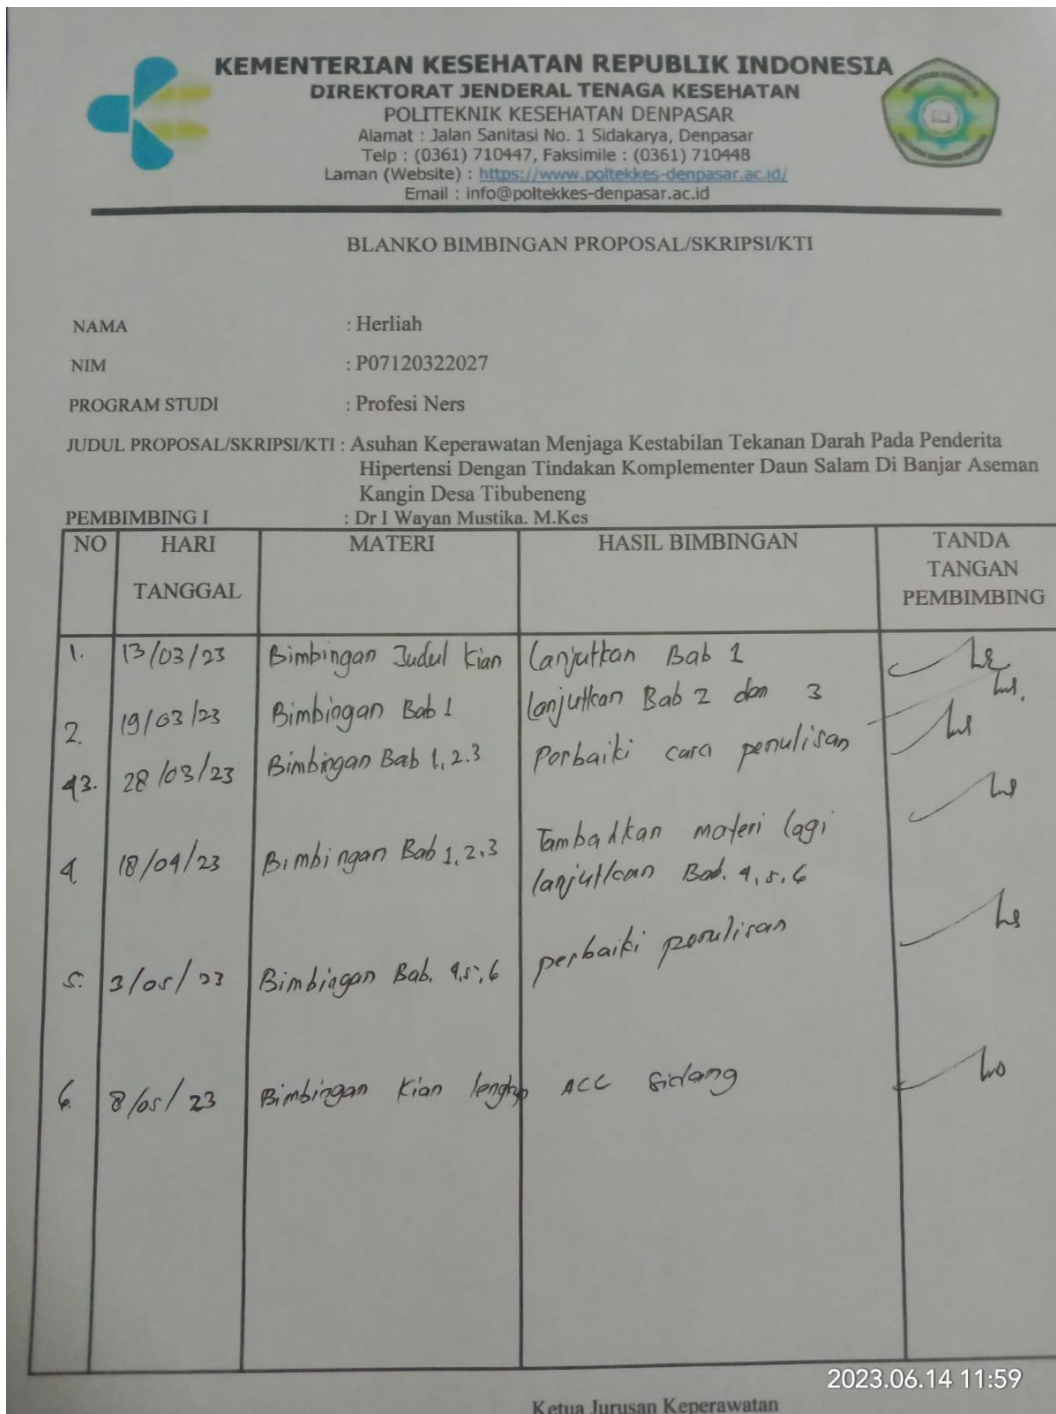 KEMENTERIAN KESEHATAN REPUBLIK INDONESIA
DIREKTORAT JENDERAL TENAGA KESEHATAN
POLITEKNIK KESEHATAN DENPASAR
Alamat : Jalan Sanitasi No. 1 Sidakarya, Denpasar
Telp : (0361) 710447, Faksimile : (0361) 710448
Laman (Website) : https://www.poltekkes-denpasar.ac.id/
Email : info@poltekkes-denpasar.ac.id
BLANKO BIMBINGAN PROPOSAL/SKRIPSI/KTI
NAMA : Herliah
NIM : P07120322027
PROGRAM STUDI : Profesi Ners
JUDUL PROPOSAL/SKRIPSI/KTI : Asuhan Keperawatan Menjaga Kestabilan Tekanan Darah Pada Penderita
Hipertensi Dengan Tindakan Komplementer Daun Salam Di Banjar Aseman
Kangin Desa Tibubeneng
PEMBIMBING I : Dr I Wayan Mustika. M.Kes
NO HARI TANGGAL MATERI HASIL BIMBINGAN TANDA TANGAN PEMBIMBING
1. 13/03/23 Bimbingan Judul Kian Lanjutkan Bab 1
2. 19/03/23 Bimbingan Bab 1 Lanjutkan Bab 2 dan 3
3. 28/03/23 Bimbingan Bab 1, 2.3 Perbaiki cara penulisan
4. 18/04/23 Bimbingan Bab 1, 2, 3 Tambahkan materi lagi
lanjutkan Bab. 4, 5, 6
5. 3/05/23 Bimbingan Bab. 4, 5, 6 perbaiki penulisan
6. 8/05/23 Bimbingan Kian lengkap ACC sidang
2023.06.14 11:59
Ketua Jurusan Keperawatan